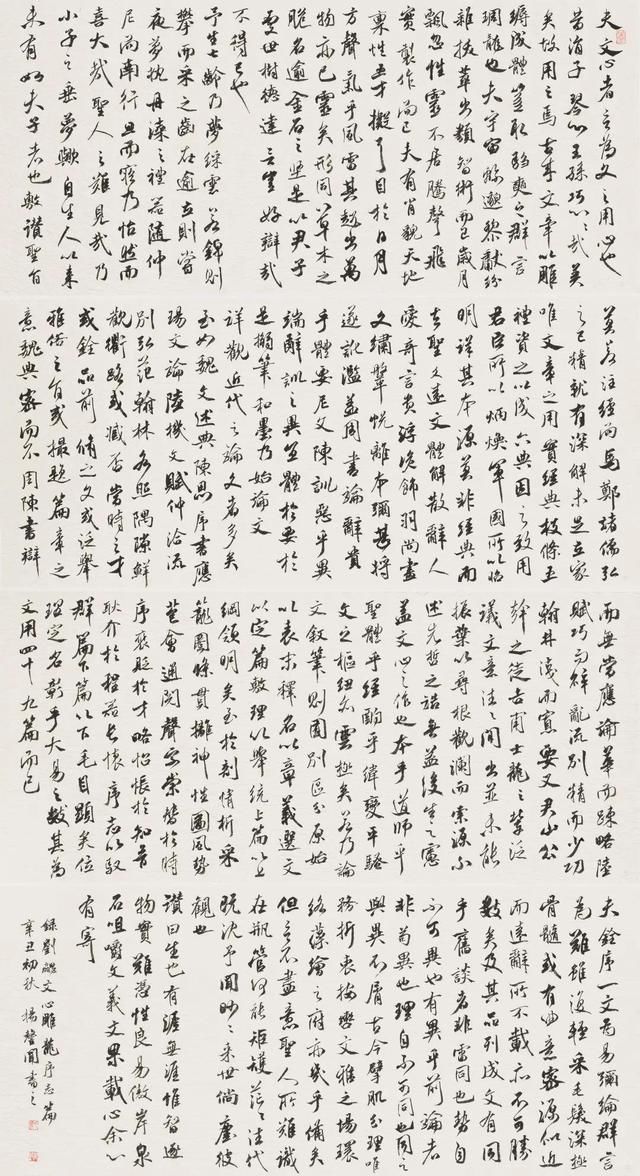 夫文心者言為文之用心也
昔涓子琴心王孫巧心心哉美
矣故用之焉古來文章以雕
縟成體豈取騶奭之群言
琱龍也夫宇宙綿邈黎獻紛
雜拔萃出類智術而已歲月
飄忽性靈不居騰聲飛
實製作而已夫有肖貌天地
稟性五才擬耳目於日月
方聲氣乎風雷其超出萬
物亦已靈矣形同草木之
脆名逾金石之堅是以君子
處世樹德建言豈好辯哉
不得已也
予生七齡乃夢綵雲若錦則
攀而采之齒在逾立則嘗
夜夢執丹漆之禮器隨仲
尼而南行旦而寤乃怡然而
喜大哉聖人之難見哉乃
小子之垂夢歟自生人以來
未有如夫子者也敷讚聖旨
莫若注經而馬鄭諸儒弘
之已精就有深解未足立家
唯文章之用實經典枝條五
禮資之以成六典因之致用
君臣所以炳煥軍國所以昭
明詳其本源莫非經典而
去聖久遠文體解散辭人
愛奇言貴浮詭飾羽尚畫
文繡鞶帨離本彌甚將
遂訛濫蓋周書論辭貴
乎體要尼父陳訓惡乎異
端辭訓之異宜體於要於
是搦筆和墨乃始論文
詳觀近代之論文者多矣
至如魏文述典陳思序書應
瑒文論陸機文賦仲洽流
別弘範翰林各照隅隙鮮
觀衢路或臧否當時之才
或銓品前修之文或泛舉
雅俗之旨或撮題篇章之
意魏典密而不周陳書辯
而無當應論華而疎略陸
賦巧而碎亂流別精而少功
翰林淺而寡要又君山公
幹之徒吉甫士龍之輩泛
議文意往往間出並未能
振葉以尋根觀瀾而索源不
述先哲之誥無益後生之慮
蓋文心之作也本乎道師乎
聖體乎經酌乎緯變乎騷
文之樞紐亦云極矣若乃論
文敘筆則囿別區分原始
以表末釋名以章義選文
以定篇敷理以舉統上篇以上
綱領明矣至於剖情析采
籠圈條貫摛神性圖風勢
苞會通閱聲字崇替於時
序褒貶於才略怊悵於知音
耿介於程器長懷序志以馭
群篇下篇以下毛目顯矣位
理定名彰乎大易之數其為
文用四十九篇而已
夫銓序一文為易彌綸群言
為難雖復輕采毛髮深極
骨髓或有曲意密源似近
而遠辭所不載亦不可勝
數矣及其品列成文有同
乎舊談者非雷同也勢自
不可異也有異乎前論者
非苟異也理自不可同也同之
與異不屑古今擘肌分理唯
務折衷按轡文雅之場環
絡藻繪之府亦幾乎備矣
但言不盡意聖人所難識
在瓶管何能矩矱茫茫往代
既沈予聞眇眇來世倘塵彼
觀也
讚曰生也有涯無涯惟智逐
物實難憑性良易傲岸泉
石咀嚼文義文果載心余心
有寄
錄劉勰文心雕龍序志篇
辛丑初秋 楊書之